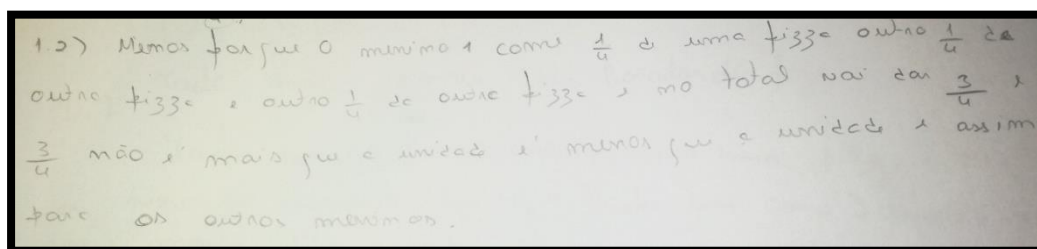 1.2) Menos porque o menino 1 come 1/4 de uma pizza outro 1/4 de
outra pizza e outro 1/4 de outra pizza e no total vai dar 3/4 e
3/4 não é mais que a unidade é menos que a unidade e assim
para os outros meninos.